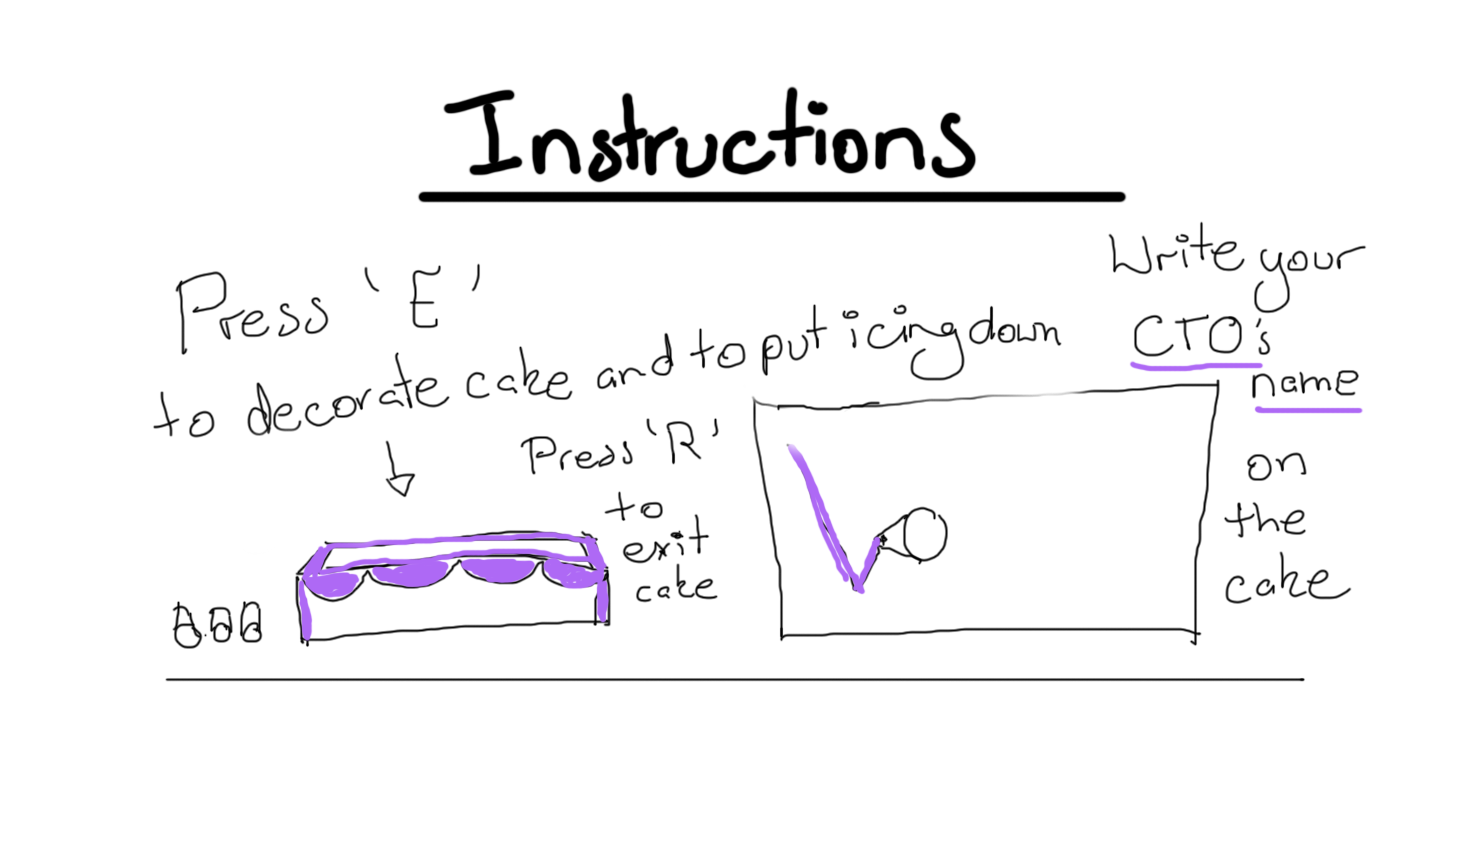 Instructions
Press 'E'
to decorate cake and to put icing down
Press 'R'
to
exit
cake
Write your
CTO's
name
on
the
cake